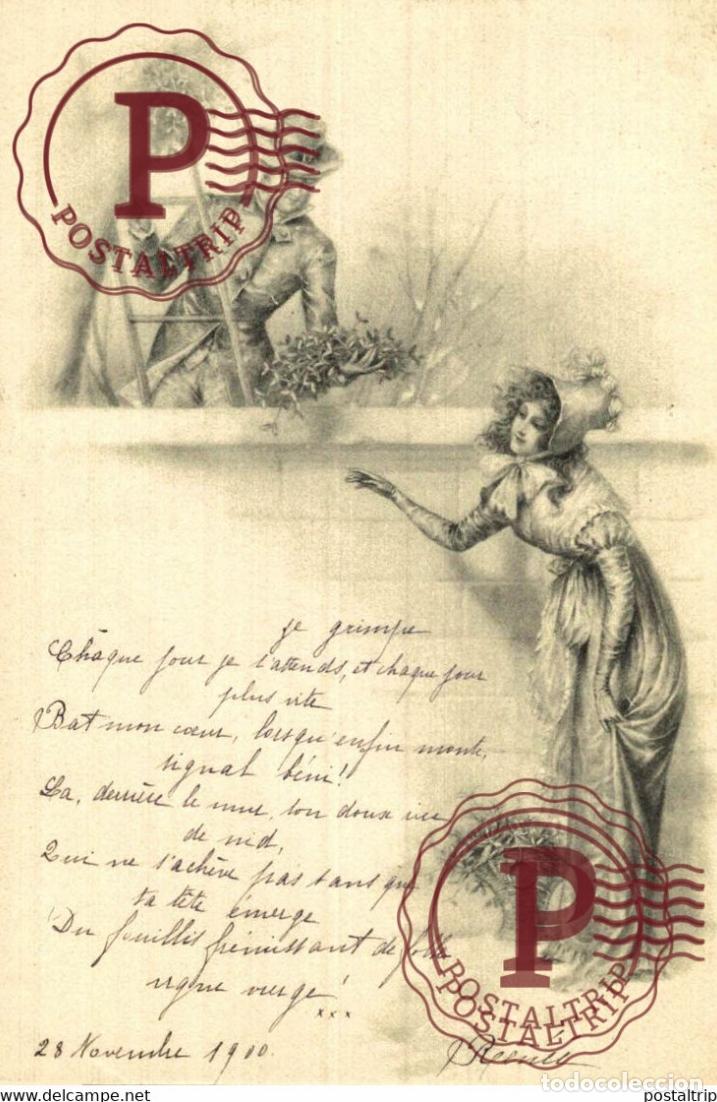 P
POSTALTRIP
je grimpe
Chaque jour je t'attends, et chaque jour
plus vite
Bat mon cœur, lorsqu'enfin monte,
signal béni!
La, derrière le mur, ton doux
de nid,
Qui ne s'achève pas sans que
ta tête émerge
Du fouillis frémissant de folle
vigne vierge!
x x x
28 Novembre 1900
P
POSTALTRIP
POSTALTRIP
todocoleccion
www.delcampe.net
postaltrip